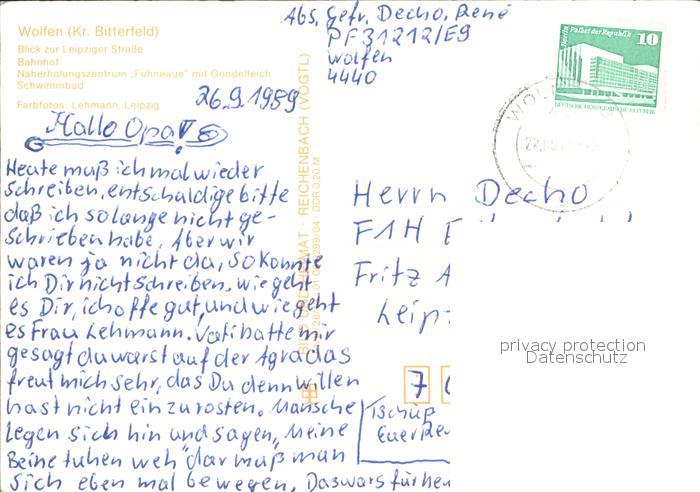 Wolfen (Kr. Bitterfeld)
Blick zur Leipziger Straße
Bahnhof
Naherholungszentrum „Fuhneaue" mit Gondelteich
Schwimmbad
Farbfotos: Lehmann, Leipzig
Abs. Gefr. Decho, René
PF 31212/E9
Wolfen
4440
26.9.1989
Hallo Opa!
Heute muß ich mal wieder
schreiben, entschuldige bitte
daß ich so lange nicht ge-
schrieben habe. Aber wir
waren ja nicht da, so konnte
ich Dir nicht schreiben. wie geht
es Dir, ich offe gut, und wie geht
es Frau Lehmann. Vati hatte mir
gesagt du warst auf der Agra das
freut mich sehr, das Du denn willen
hast nicht ein zu rosten. Mansche
legen sich hin und sagen, Meine
Beine tuhen weh" dar muß man
sich eben mal bewegen, Das wars für heu
Tschüß
Euer
BILD UND HEIMAT · REICHENBACH (VOGTL)
DDR 0,20 M
Berlin Palast der Republik
10
DEUTSCHE DEMOKRATISCHE REPUBLIK
WOL
Herrn Decho
FAH
Fritz A
Leip
7
privacy protection
Datenschutz